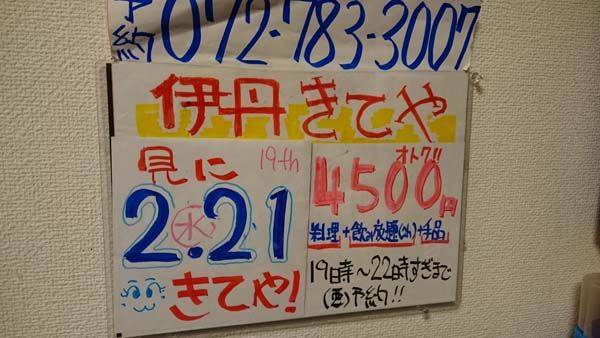 予約 072-783-3007
伊丹きてや
見に 19th
2.21
水
きてや!
オトク!!
4500円
料理+飲み放題(2h)+手品
19時〜22時すぎまで
(要)予約!!